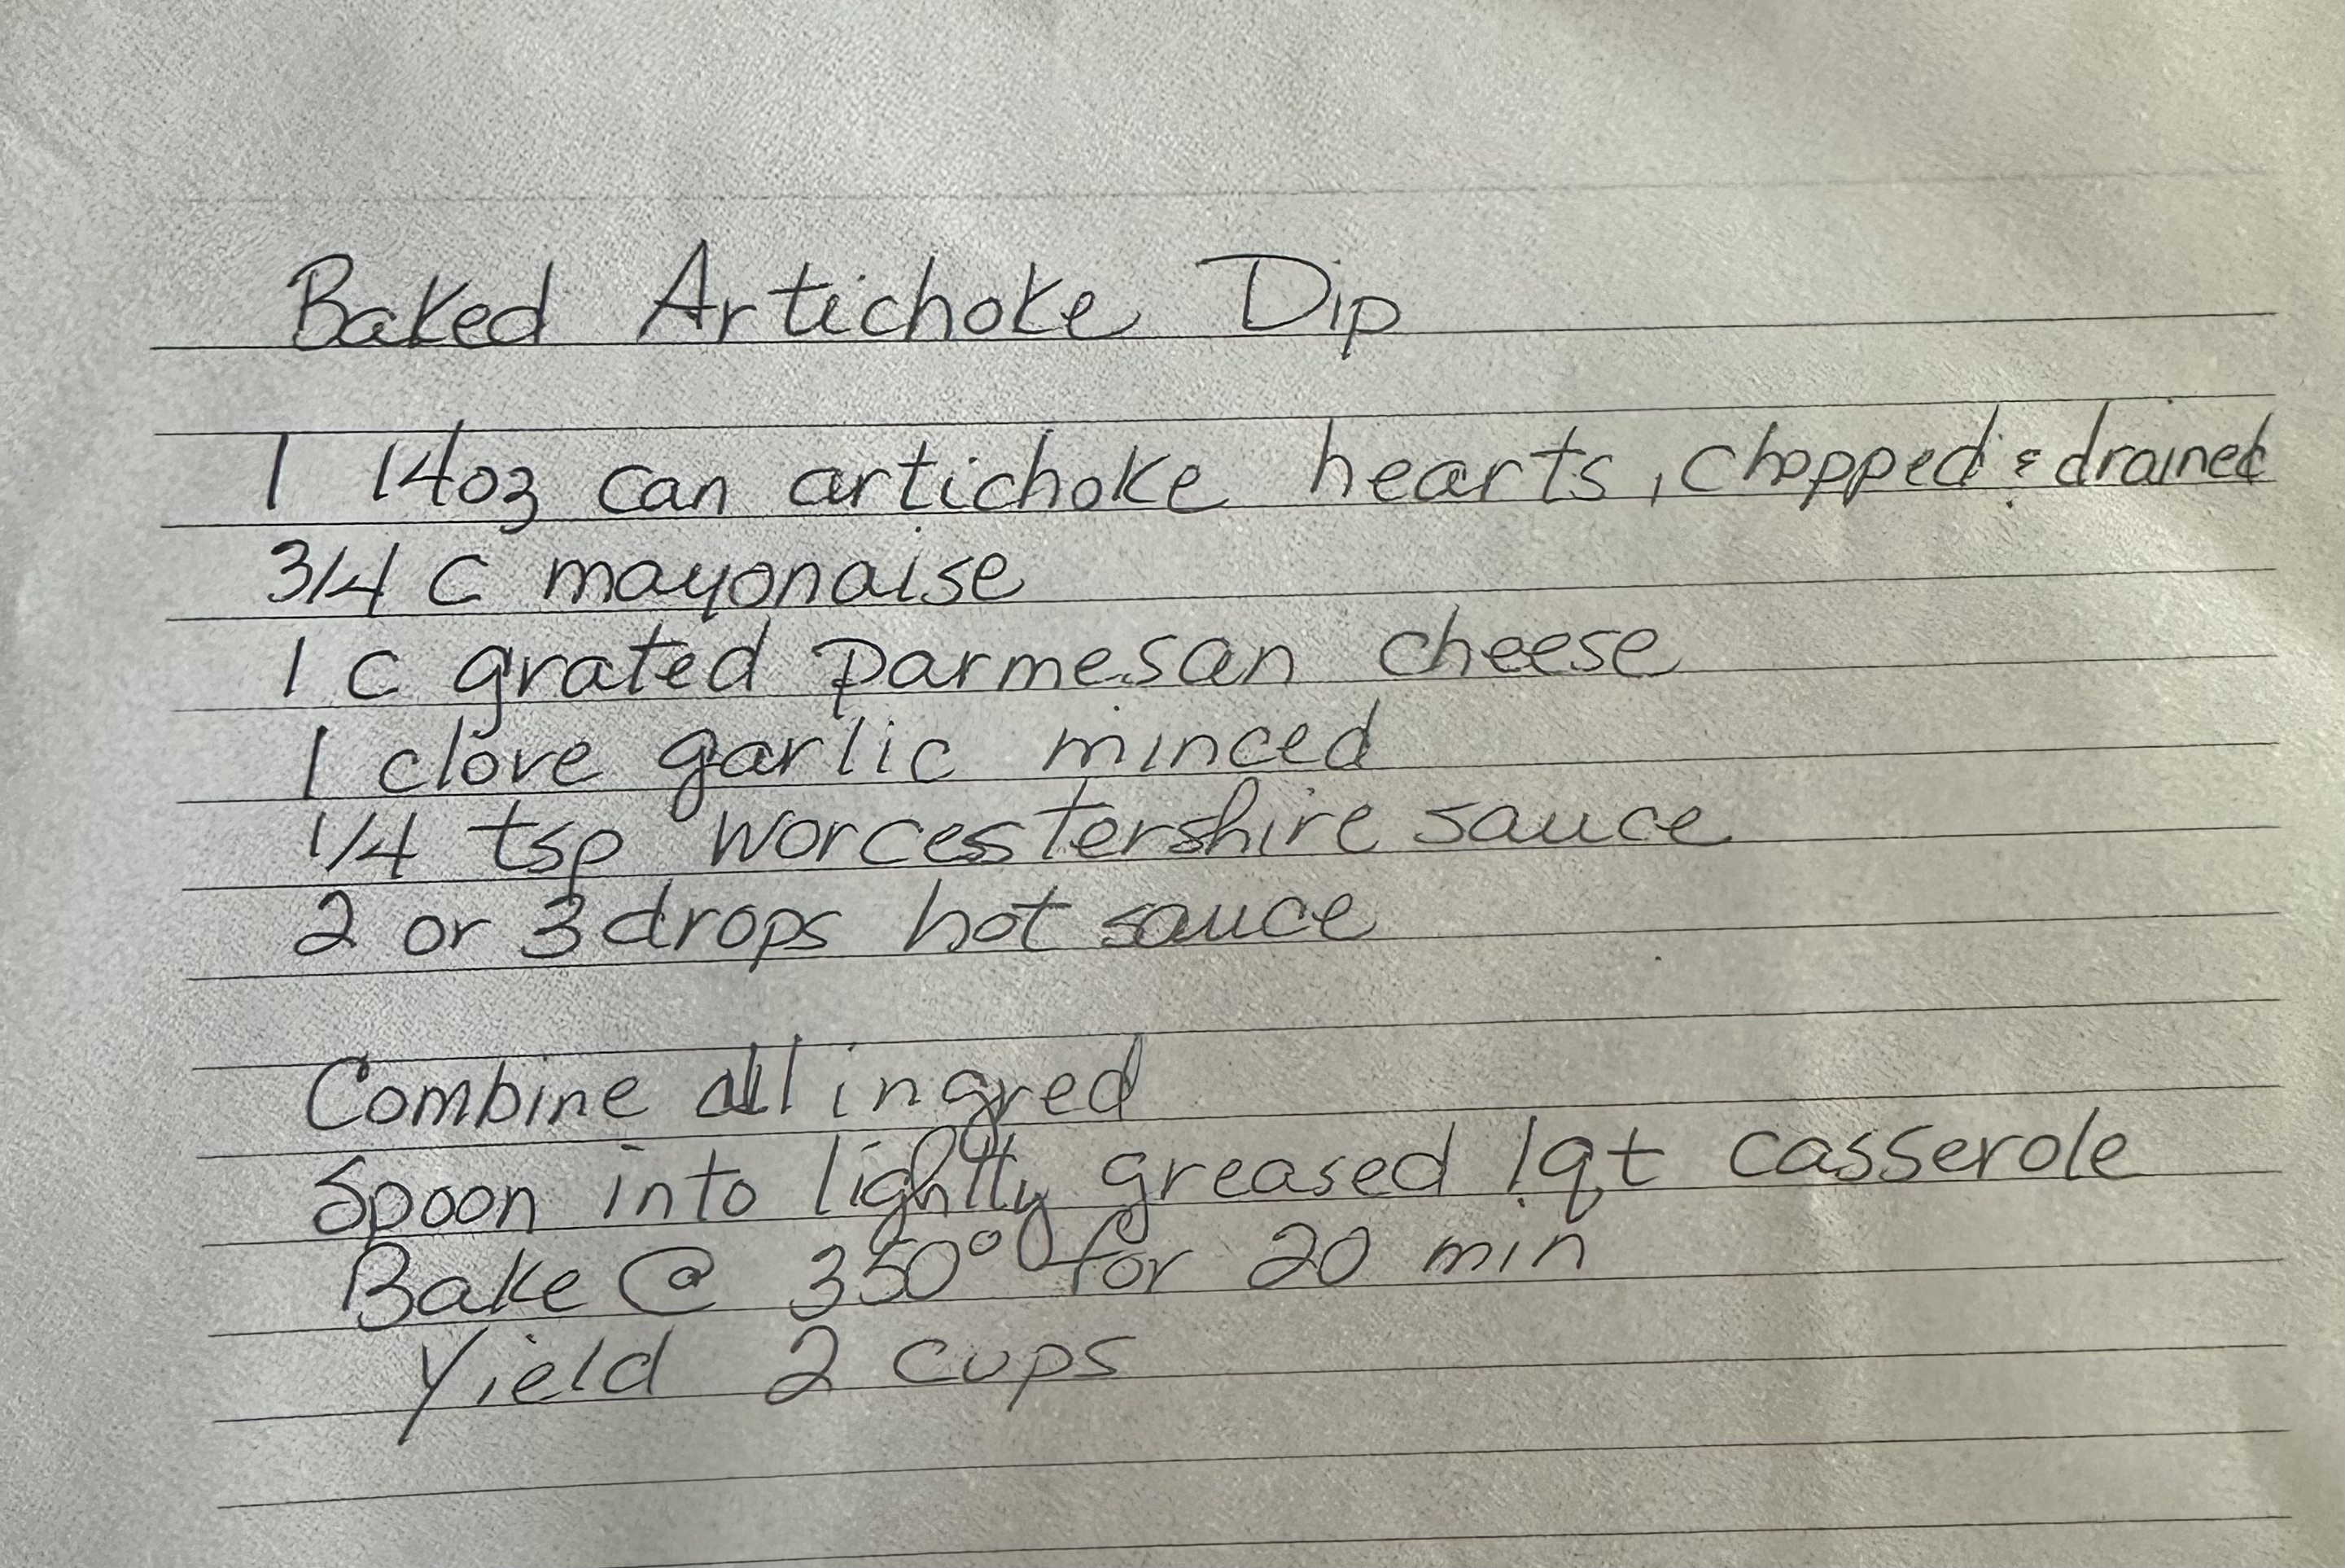 Baked Artichoke Dip
1 14oz can artichoke hearts, chopped & drained
3/4 C mayonaise
1 C grated parmesan cheese
1 clove garlic minced
1/4 tsp worcestershire sauce
2 or 3 drops hot sauce
Combine all ingred
Spoon into lightly greased 1qt casserole
Bake @ 350° for 20 min
Yield 2 cups